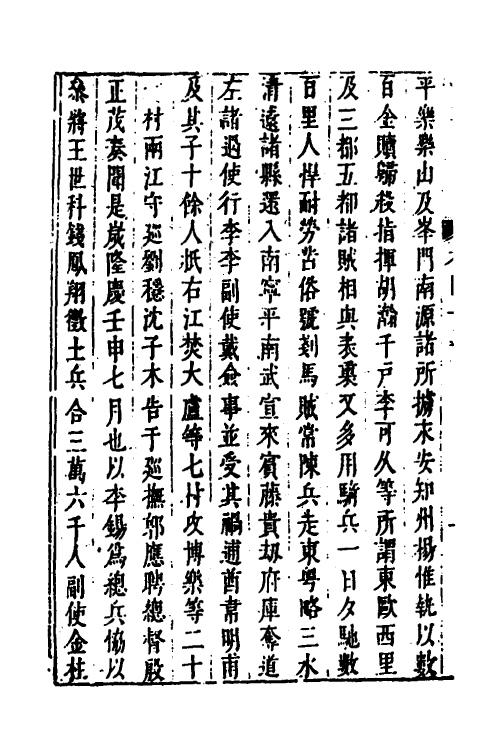 平樂樂山及峯門南源諸所擄末安知州楊惟執以數
百金贖歸殺指揮胡瀚千戸李可久等所謂東歐西里
及三都五都諸賊相與表裏又多用騎兵一日夕馳數
百里人悍耐勞苦俗號剗馬賊常陳兵走東粤略三水
清遠諸縣還入南寧平南武宣來賓藤貴刼府庫奪道
左諸過使行李李副使戴僉事並受其禍逋酋韋明甫
及其子十餘人抵右江焚大廬等七村攻博樂等二十
村兩江守廵劉穩沈子木告于廵撫郭應聘總督殷
正茂奏聞是嵗隆慶壬申七月也以李錫爲總兵協以
叅將王世科錢鳳翔徵土兵合三萬六千人副使金柱